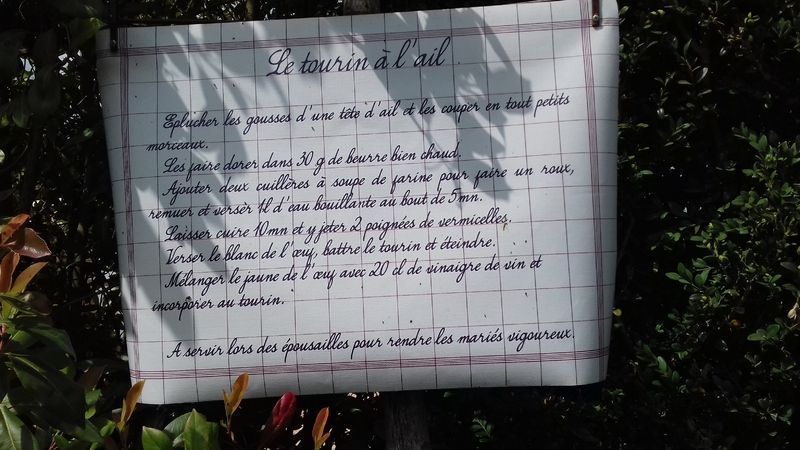 Le tourin à l'ail
Eplucher les gousses d'une tête d'ail et les couper en tout petits
morceaux.
Les faire dorer dans 30 g de beurre bien chaud.
Ajouter deux cuillères à soupe de farine pour faire un roux,
remuer et versèr 1l d'eau bouillante au bout de 5mn.
Laisser cuire 10mn et y jeter 2 poignées de vermicelles.
Verser le blanc de l'œuf, battre le tourin et éteindre.
Mélanger le jaune de l'œuf avec 20 cl de vinaigre de vin et
incorporer au tourin.
A servir lors des épousailles pour rendre les mariés vigoureux.